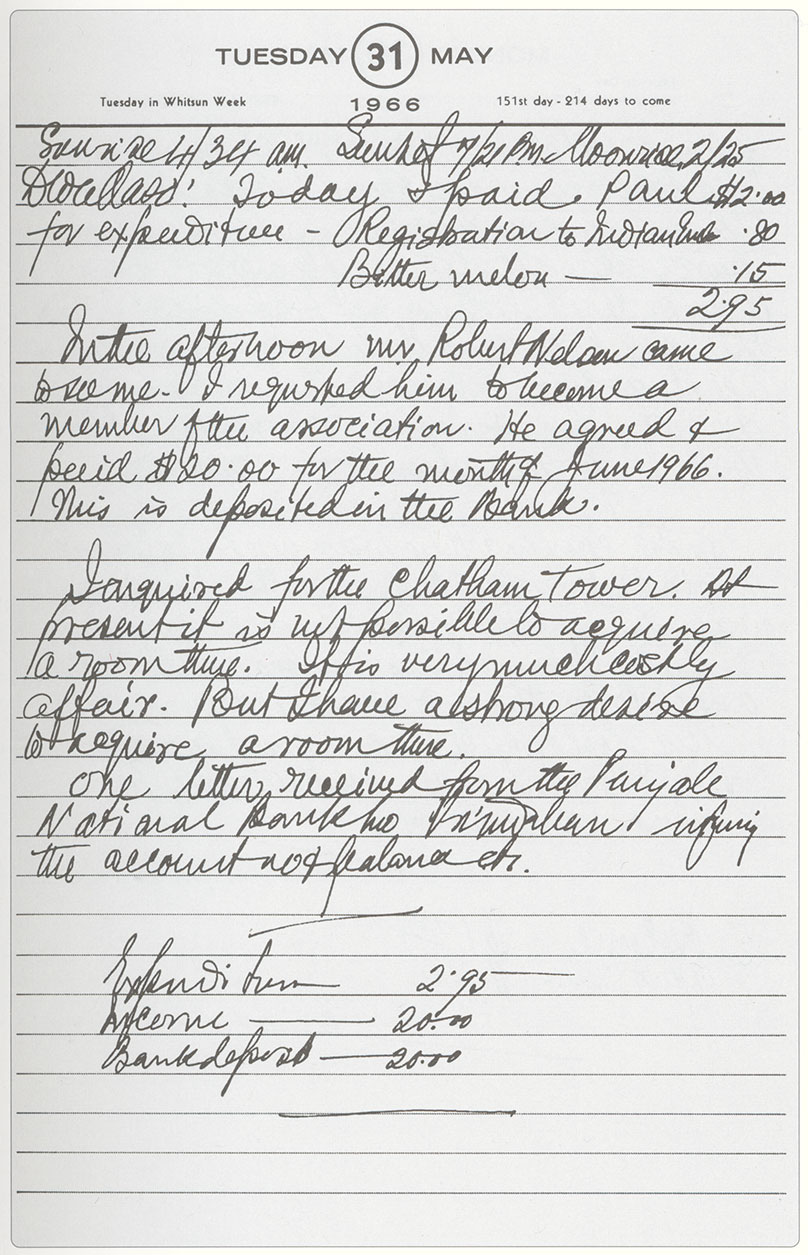 TUESDAY 31 MAY
Tuesday in Whitsun Week 1966 151st day - 214 days to come
Sunrise 4/34 a.m. Sunset 7/21 P.M. Moonrise, 2/25
Today I paid Paul $2.00
for expenditure - Registration to Indian .80
Bitter melon — .15
2.95
In the afternoon mr Robert Nelson came
to see me. I requested him to become a
member of the association. He agreed &
paid $20.00 for the month of June 1966.
This is deposited in the Bank.
I enquired for the Chatham Tower. At
present it is not possible to acquire
a room there. It is very much costly
affair. But I have a strong desire
to acquire a room there.
One letter received from the Punjab
National Bank Vrindaban
the account no & balance etc.
Expenditure — 2.95
Income — 20.00
Bank deposit — 20.00